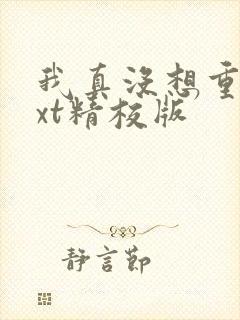 我真没想重
xt精校版
静言节